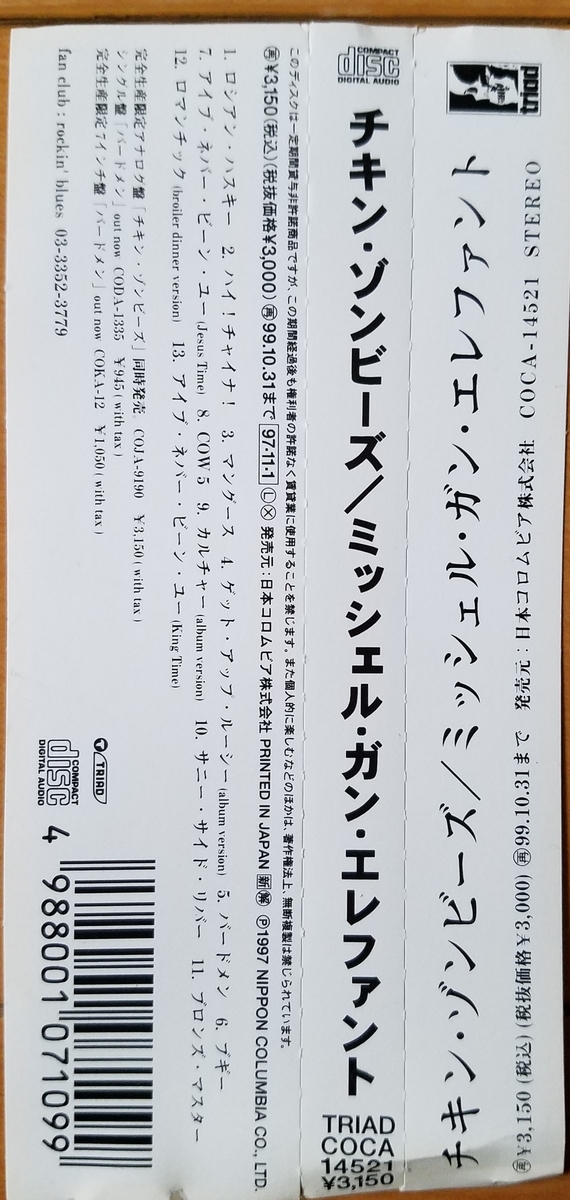 triad
チキン・ゾンビーズ／ミッシェル・ガン・エレファント
㊮¥3,150 (税込) (税抜価格¥3,000) ㊮99.10.31まで 発売元：日本コロムビア株式会社 COCA-14521 STEREO
COMPACT
disc
DIGITAL AUDIO
チキン・ゾンビーズ／ミッシェル・ガン・エレファント
TRIAD
COCA
14521
¥3,150
このディスクは一定期間貸与非許諾商品ですが、この期間経過後も権利者の許諾なく賃貸業に使用することを禁じます。また個人的に楽しむなどのほかは、著作権法上、無断複製は禁じられています。
¥3,150(税込)(税抜価格¥3,000) 99.10.31まで 97・11・1 Ⓛ Ⓧ 発売元：日本コロムビア株式会社 PRINTED IN JAPAN ℗1997 NIPPON COLUMBIA CO., LTD.
1. ロシアン・ハスキー 2. ハイ！チャイナ！ 3. マングース 4. ゲット・アップ・ルーシー (album version) 5. バードメン 6. ブギー
7. アイブ・ネバー・ビーン・ユー (Jesus Time) 8. COW 5 9. カルチャー (album version) 10. サニー・サイド・リバー 11. ブロンズ・マスター
12. ロマンチック (broiler dinner version) 13. アイブ・ネバー・ビーン・ユー (King Time)
完全生産限定アナログ盤「チキン・ゾンビーズ」同時発売 COJA-9190 ¥3,150 ( with tax )
シングル盤「バードメン」out now CODA-1335 ¥945 ( with tax )
完全生産限定7インチ盤「バードメン」out now COKA-12 ¥1,050 ( with tax )
fan club : rockin' blues 03-3352-3779
TRIAD
COMPACT
disc
DIGITAL AUDIO
4 988001 071099